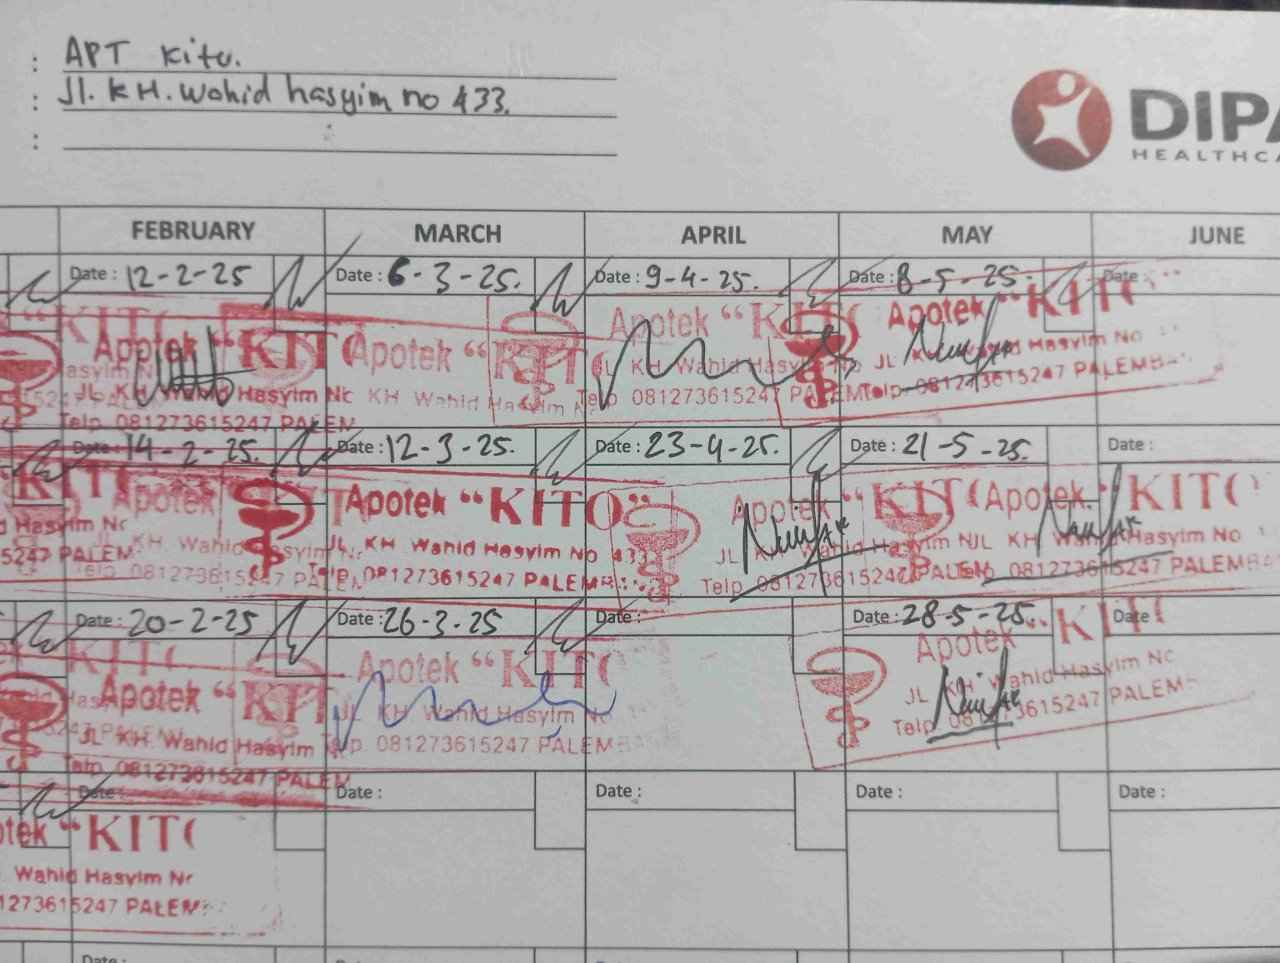 : APT Kito.
: Jl. KH. Wahid hasyim no 433.
:
DIPA
HEALTHCA
FEBRUARY MARCH APRIL MAY JUNE
Date : 12-2-25 Date : 6-3-25. Date : 9-4-25. Date : 8-5-25. Date :
Apotek "KITO Apotek "KIT Apotek "KITO Apotek "KITO
JL KH Wahid Hasyim No KH Wahid Hasyim JL KH Wahid Hasyim No JL KH Wahid Hasyim No
Telp 081273615247 PALEM Telp 081273615247 PALEM Telp 081273615247 PALEMBA
Date : 14-2-25. Date : 12-3-25. Date : 23-4-25. Date : 21-5-25. Date :
KIT Apotek Apotek "KITO" Apotek "KITO Apotek "KITO
Hasyim No KH. Wahid Hasyim JL. KH. Wahid Hasyim No 433 JL KH Wahid Hasyim N JL KH Wahid Hasyim No
15247 PALEM Telp 081273615247 PA Telp. 081273615247 PALEMB Telp 081273615247 PALEM Telp 081273615247 PALEMBA
Date : 20-2-25 Date : 26-3-25 Date : Date : 28-5-25. Date :
Apotek "KIT Apotek "KITO Apotek "KIT
JL KH. Wahid Hasyim JL KH Wahid Hasyim No JL KH Wahid Hasyim No
Telp 081273615247 PALEM Telp. 081273615247 PALEMBA Telp 081273615247 PALEM
Date : Date : Date : Date : Date :
otek "KITO
Wahid Hasyim N
1273615247 PALEM
Date :